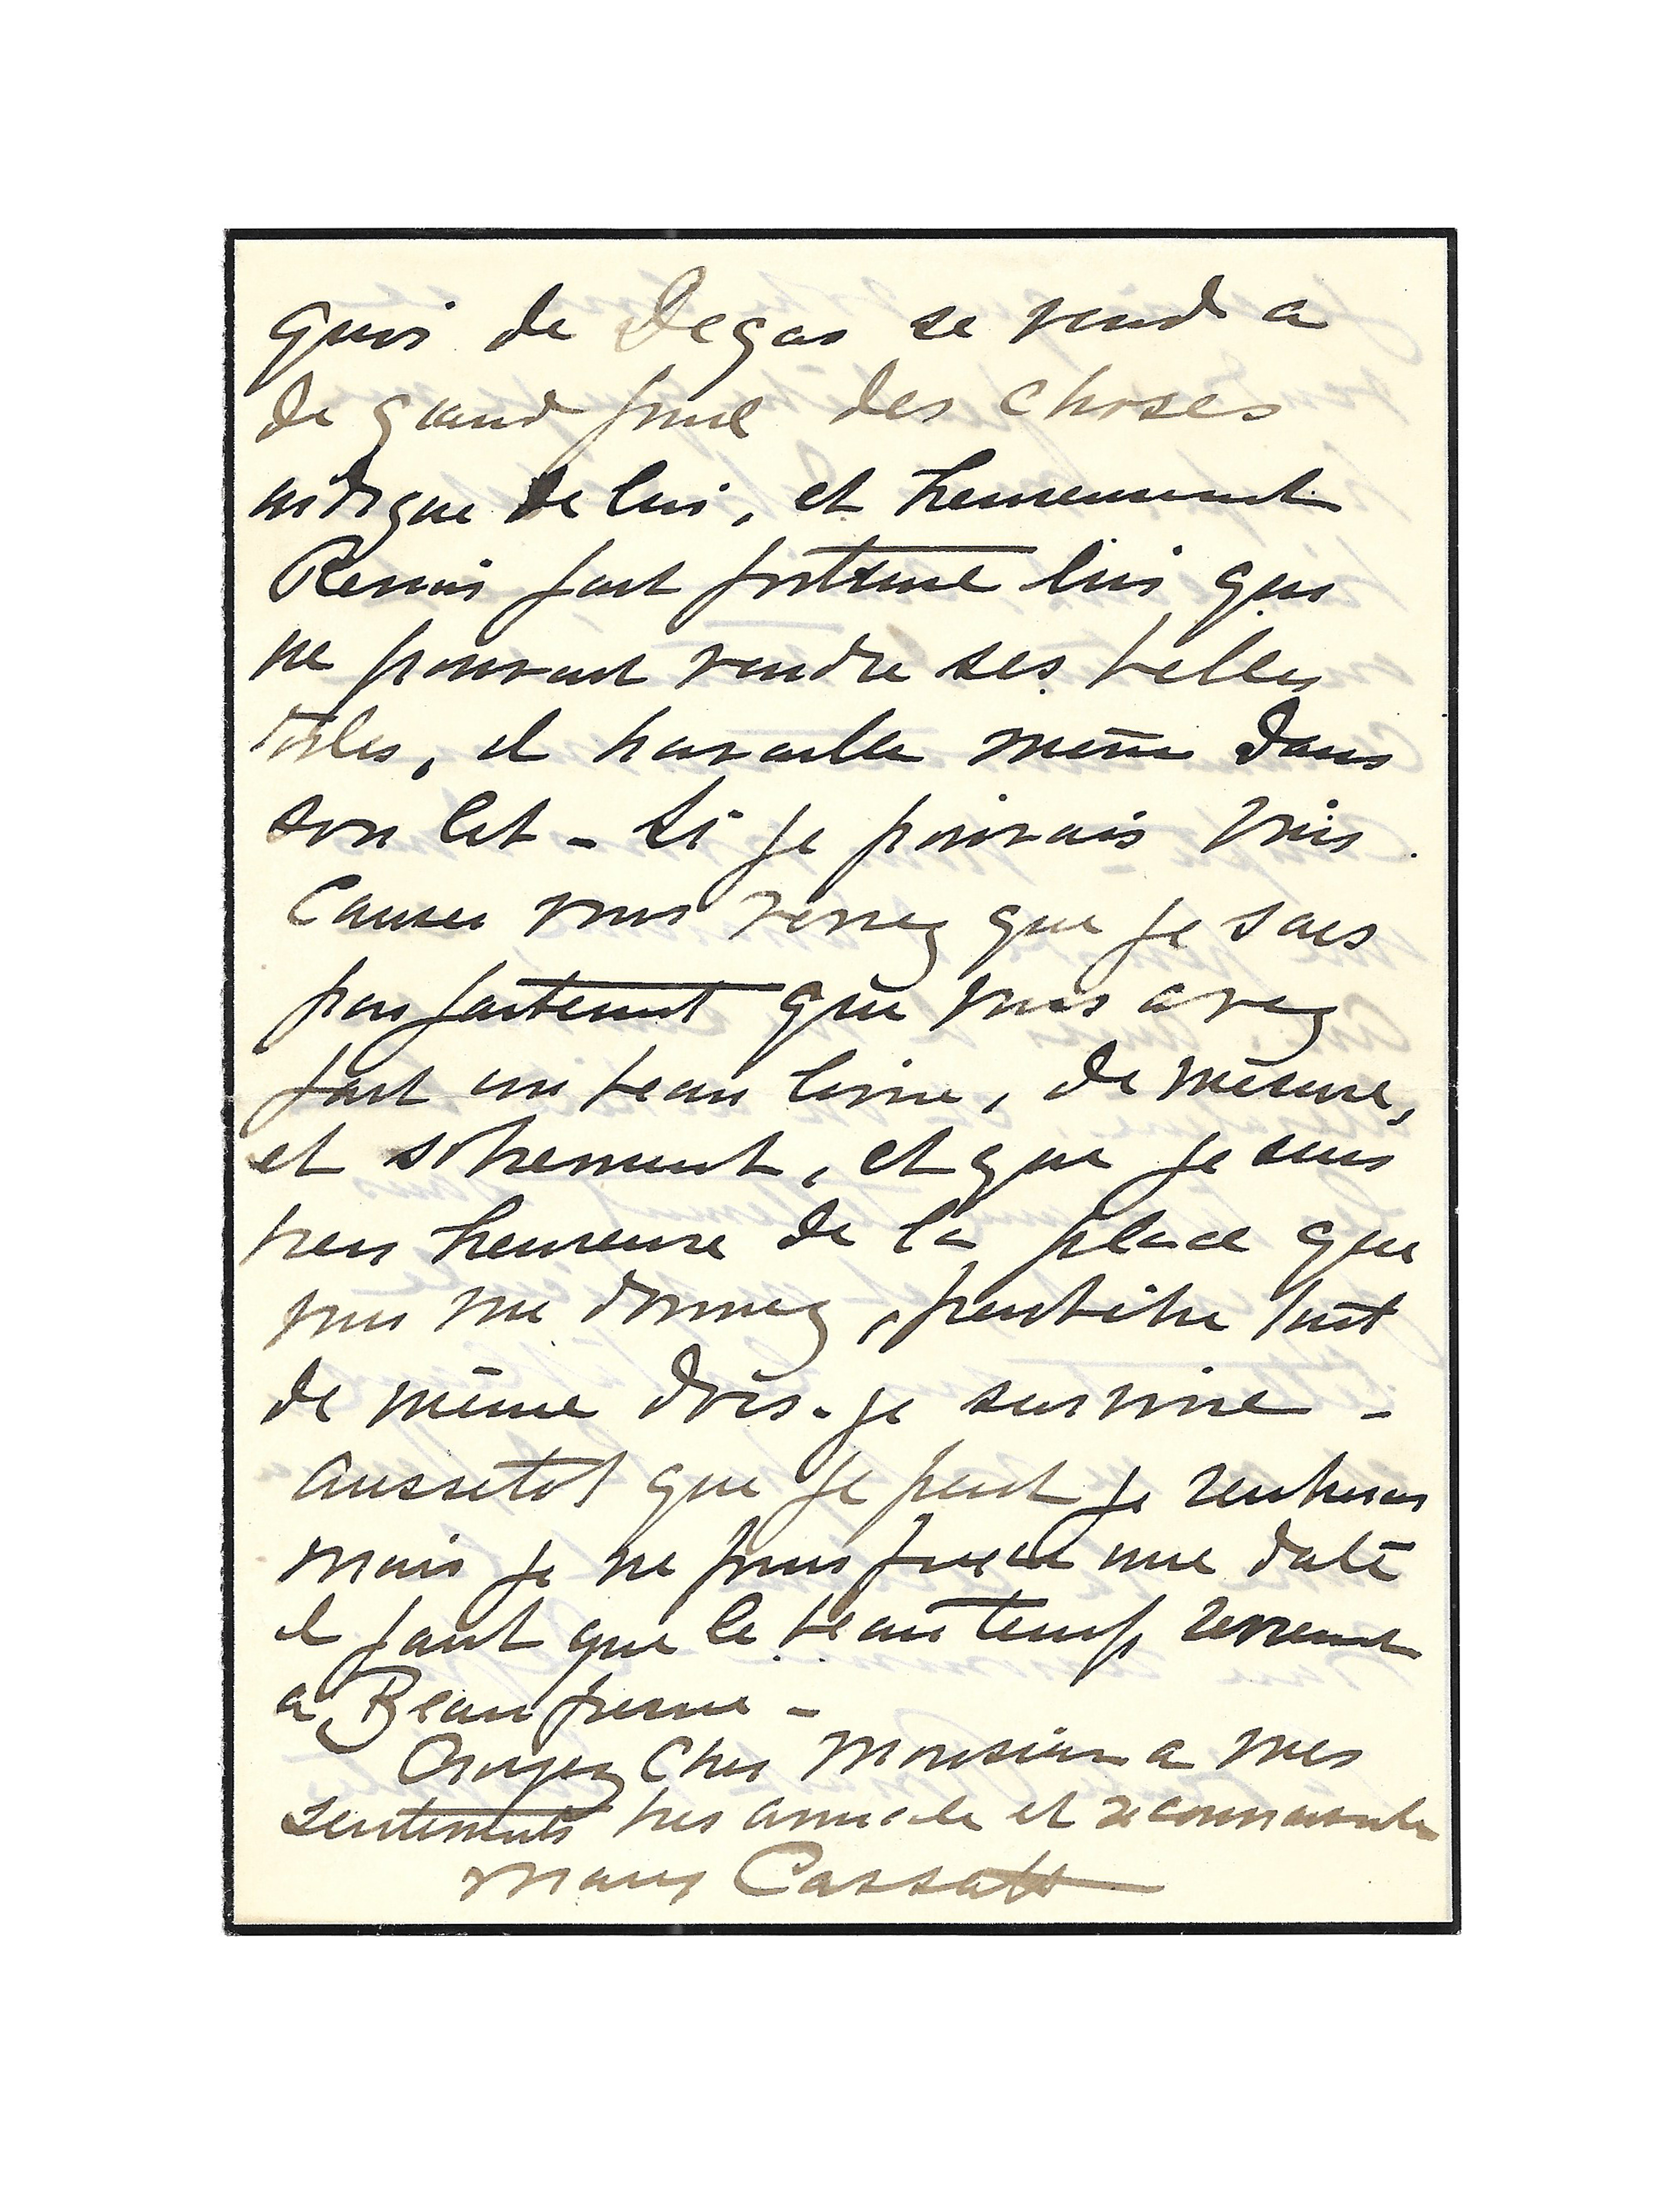 quoi de Degas se vend a
de grand prix des choses
indigne de lui, et heureusement
Renoir fait fortune lui qui
ne pouvait vendre ses belles
toiles, il travaille même dans
son lit - Si je pouvais vous
causer vous verrez que je sais
parfaitement que vous avez
fait un beau livre, de mesure,
et sobrement, et que je suis
tres heureuse de la place que
vous me donnez, peutêtre tout
de même dois-je survivre -
aussitot que je peut je rentrerai
mais je ne puis fixer une date
il faut que le beau temp revient
a Beaufresne -
Croyez Cher Monsieur a mes
sentiments tres amicale et reconnaissante
Mary Cassatt